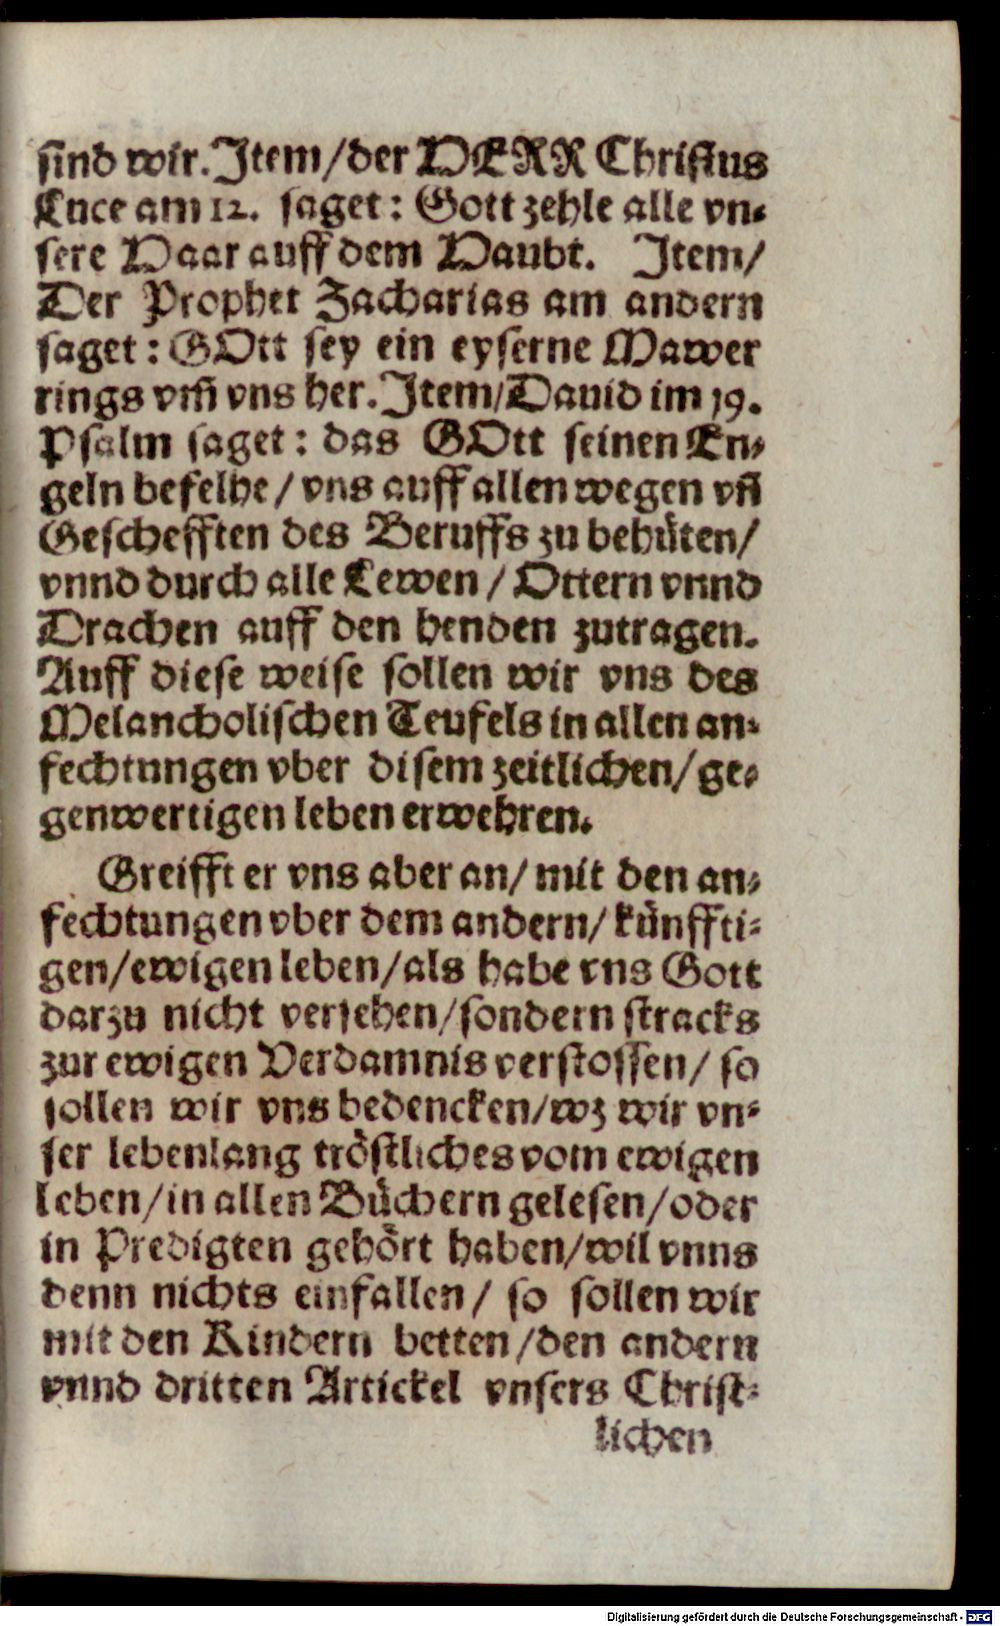 sind wir. Item/der HERR Christus
Luce am 12. saget: Gott zehle alle vn-
sere Haar auff dem Haubt. Item/
Der Prophet Zacharias am andern
saget: GOtt sey ein eyserne Mawer
rings vm̃ vns her. Item/Dauid im 19.
Psalm saget: das GOtt seinen En-
geln befelhe/vns auff allen wegen vñ
Geschefften des Beruffs zu behüten/
vnnd durch alle Lewen/Ottern vnnd
Drachen auff den henden zutragen.
Auff diese weise sollen wir vns des
Melancholischen Teufels in allen an-
fechtungen vber disem zeitlichen/ge-
genwertigen leben erwehren.
Greifft er vns aber an/mit den an-
fechtungen vber dem andern/künffti-
gen/ewigen leben/als habe vns Gott
darzu nicht versehen/sondern stracks
zur ewigen Verdamnis verstossen/so
sollen wir vns bedencken/wz wir vn-
ser lebenlang tröstliches vom ewigen
leben/in allen Büchern gelesen/oder
in Predigten gehört haben/wil vnns
denn nichts einfallen/so sollen wir
mit den Kindern betten/den andern
vnnd dritten Artickel vnsers Christ-
lichen
Digitalisierung gefördert durch die Deutsche Forschungsgemeinschaft - DFG